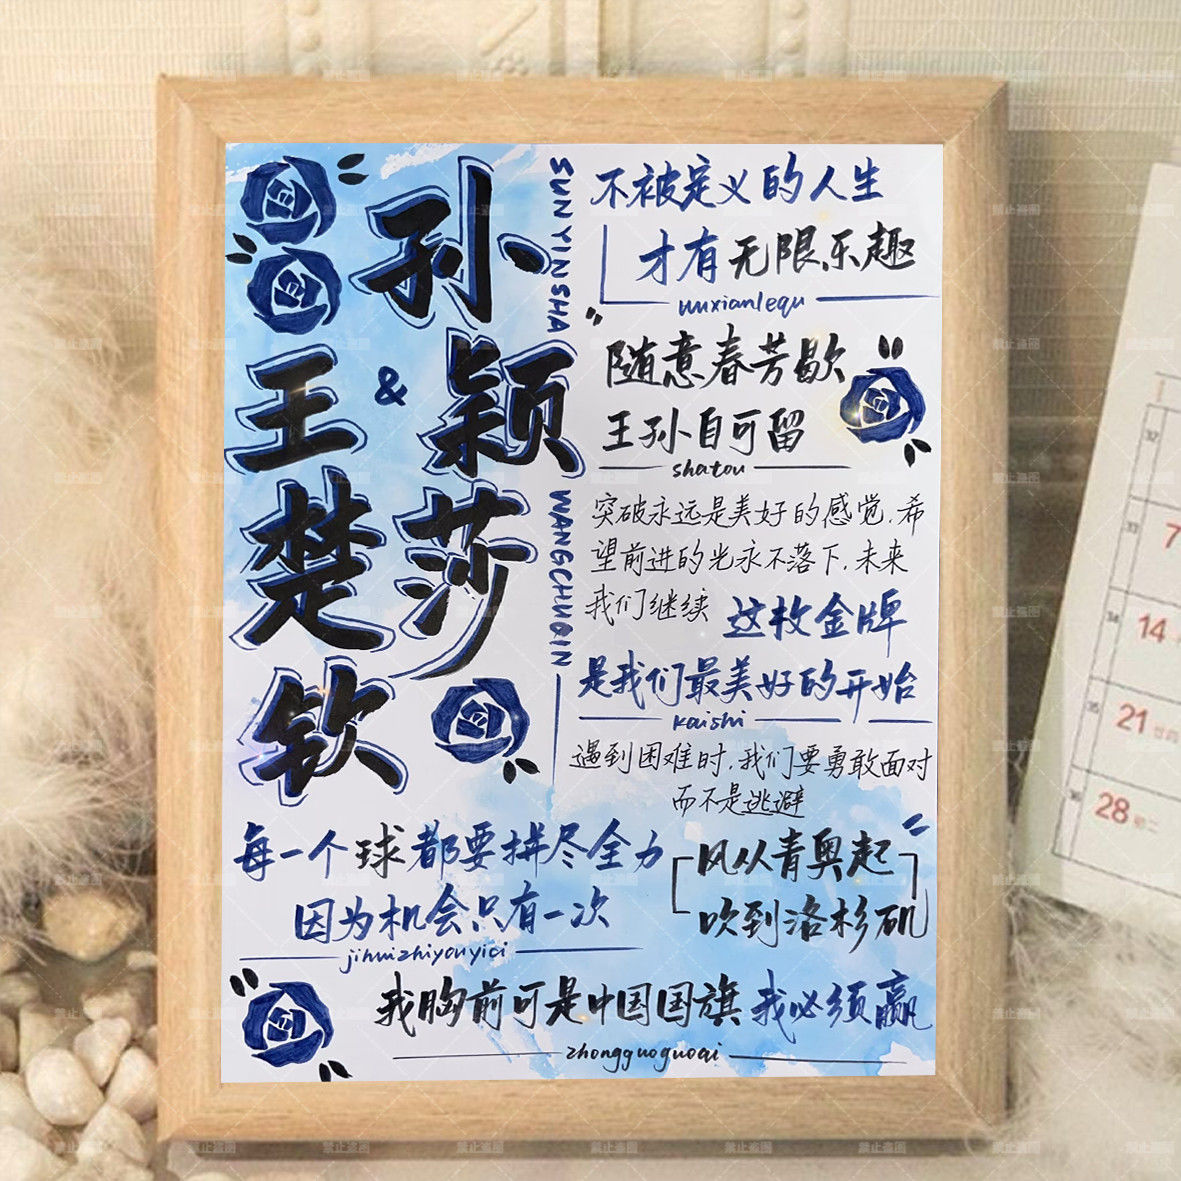 孙颖莎
&
王楚钦
SUN YINSHA
WANGCHUQIN
不被定义的人生
才有无限乐趣
wuxianlequ
随意春芳歇
王孙自可留
shatou
突破永远是美好的感觉.希
望前进的光永不落下.未来
我们继续 这枚金牌
是我们最美好的开始
kaishi
遇到困难时,我们要勇敢面对
而不是逃避
每一个球都要拼尽全力
因为机会只有一次
jihuizhiyouyici
风从青奥起
吹到洛杉矶
我胸前可是中国国旗 我必须赢
zhongguoguoqi
7
14
21
28
禁止盗图